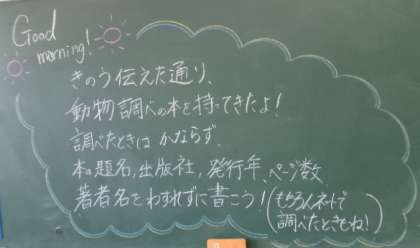 Good
morning!
きのう伝えた通り、
動物調べの本を持ってきたよ!
調べたときは かならず、
本の題名,出版社,発行年,ページ数
著者名をわすれずに書こう!(もちろんネットで
調べたときもね!)